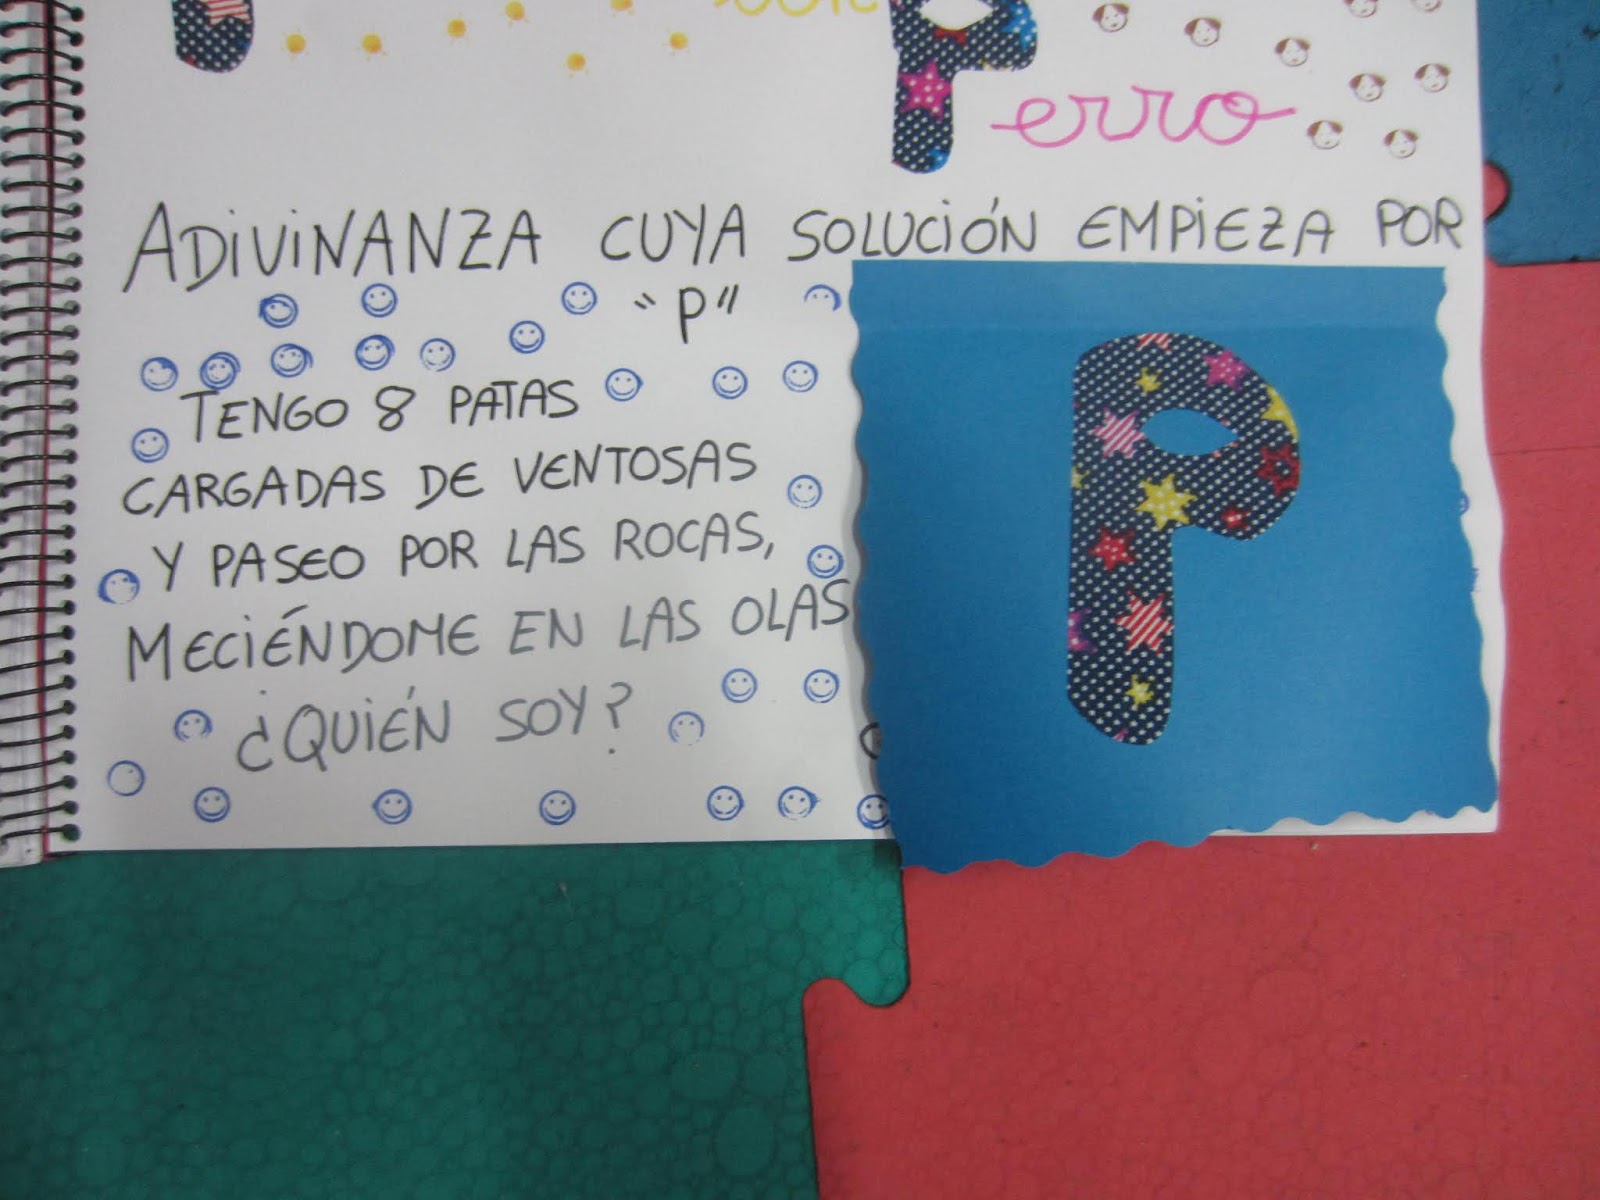 Perro
ADIVINANZA CUYA SOLUCIÓN EMPIEZA POR
"P"
TENGO 8 PATAS
CARGADAS DE VENTOSAS
Y PASEO POR LAS ROCAS,
MECIÉNDOME EN LAS OLAS
¿QUIÉN SOY?
P